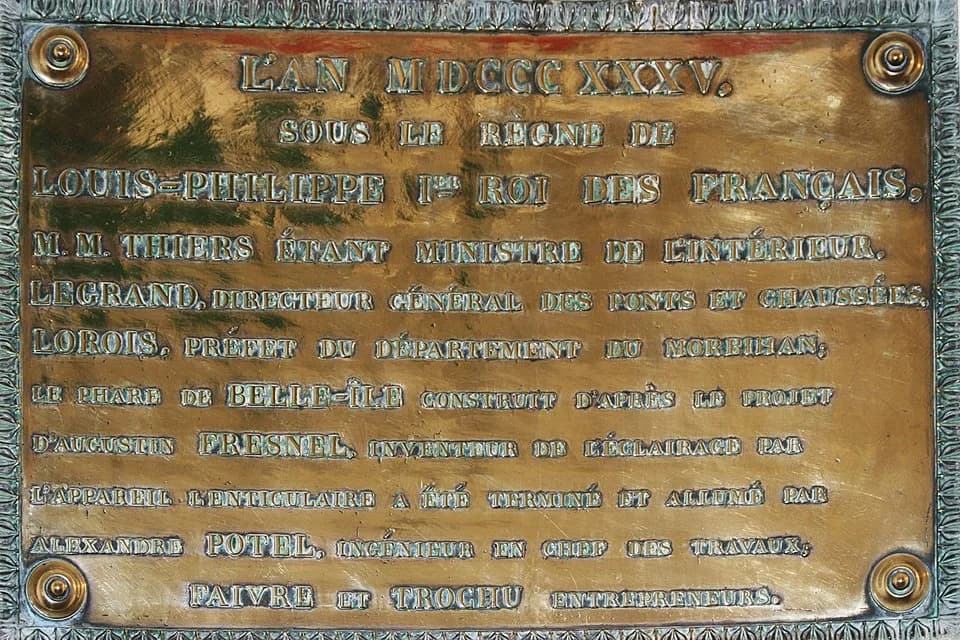 L'AN MDCCCXXXV.
SOUS LE RÈGNE DE
LOUIS-PHILIPPE Ier ROI DES FRANÇAIS,
M.M. THIERS ÉTANT MINISTRE DE L'INTÉRIEUR,
LEGRAND, DIRECTEUR GÉNÉRAL DES PONTS ET CHAUSSÉES,
LOROIS, PRÉFET DU DÉPARTEMENT DU MORBIHAN;
LE PHARE DE BELLE-ÎLE CONSTRUIT D'APRÈS LE PROJET
D'AUGUSTIN FRESNEL, INVENTEUR DE L'ÉCLAIRAGE PAR
L'APPAREIL LENTICULAIRE A ÉTÉ TERMINÉ ET ALLUMÉ PAR
ALEXANDRE POTEL, INGÉNIEUR EN CHEF DES TRAVAUX;
FAIVRE ET TROCHU ENTREPRENEURS.